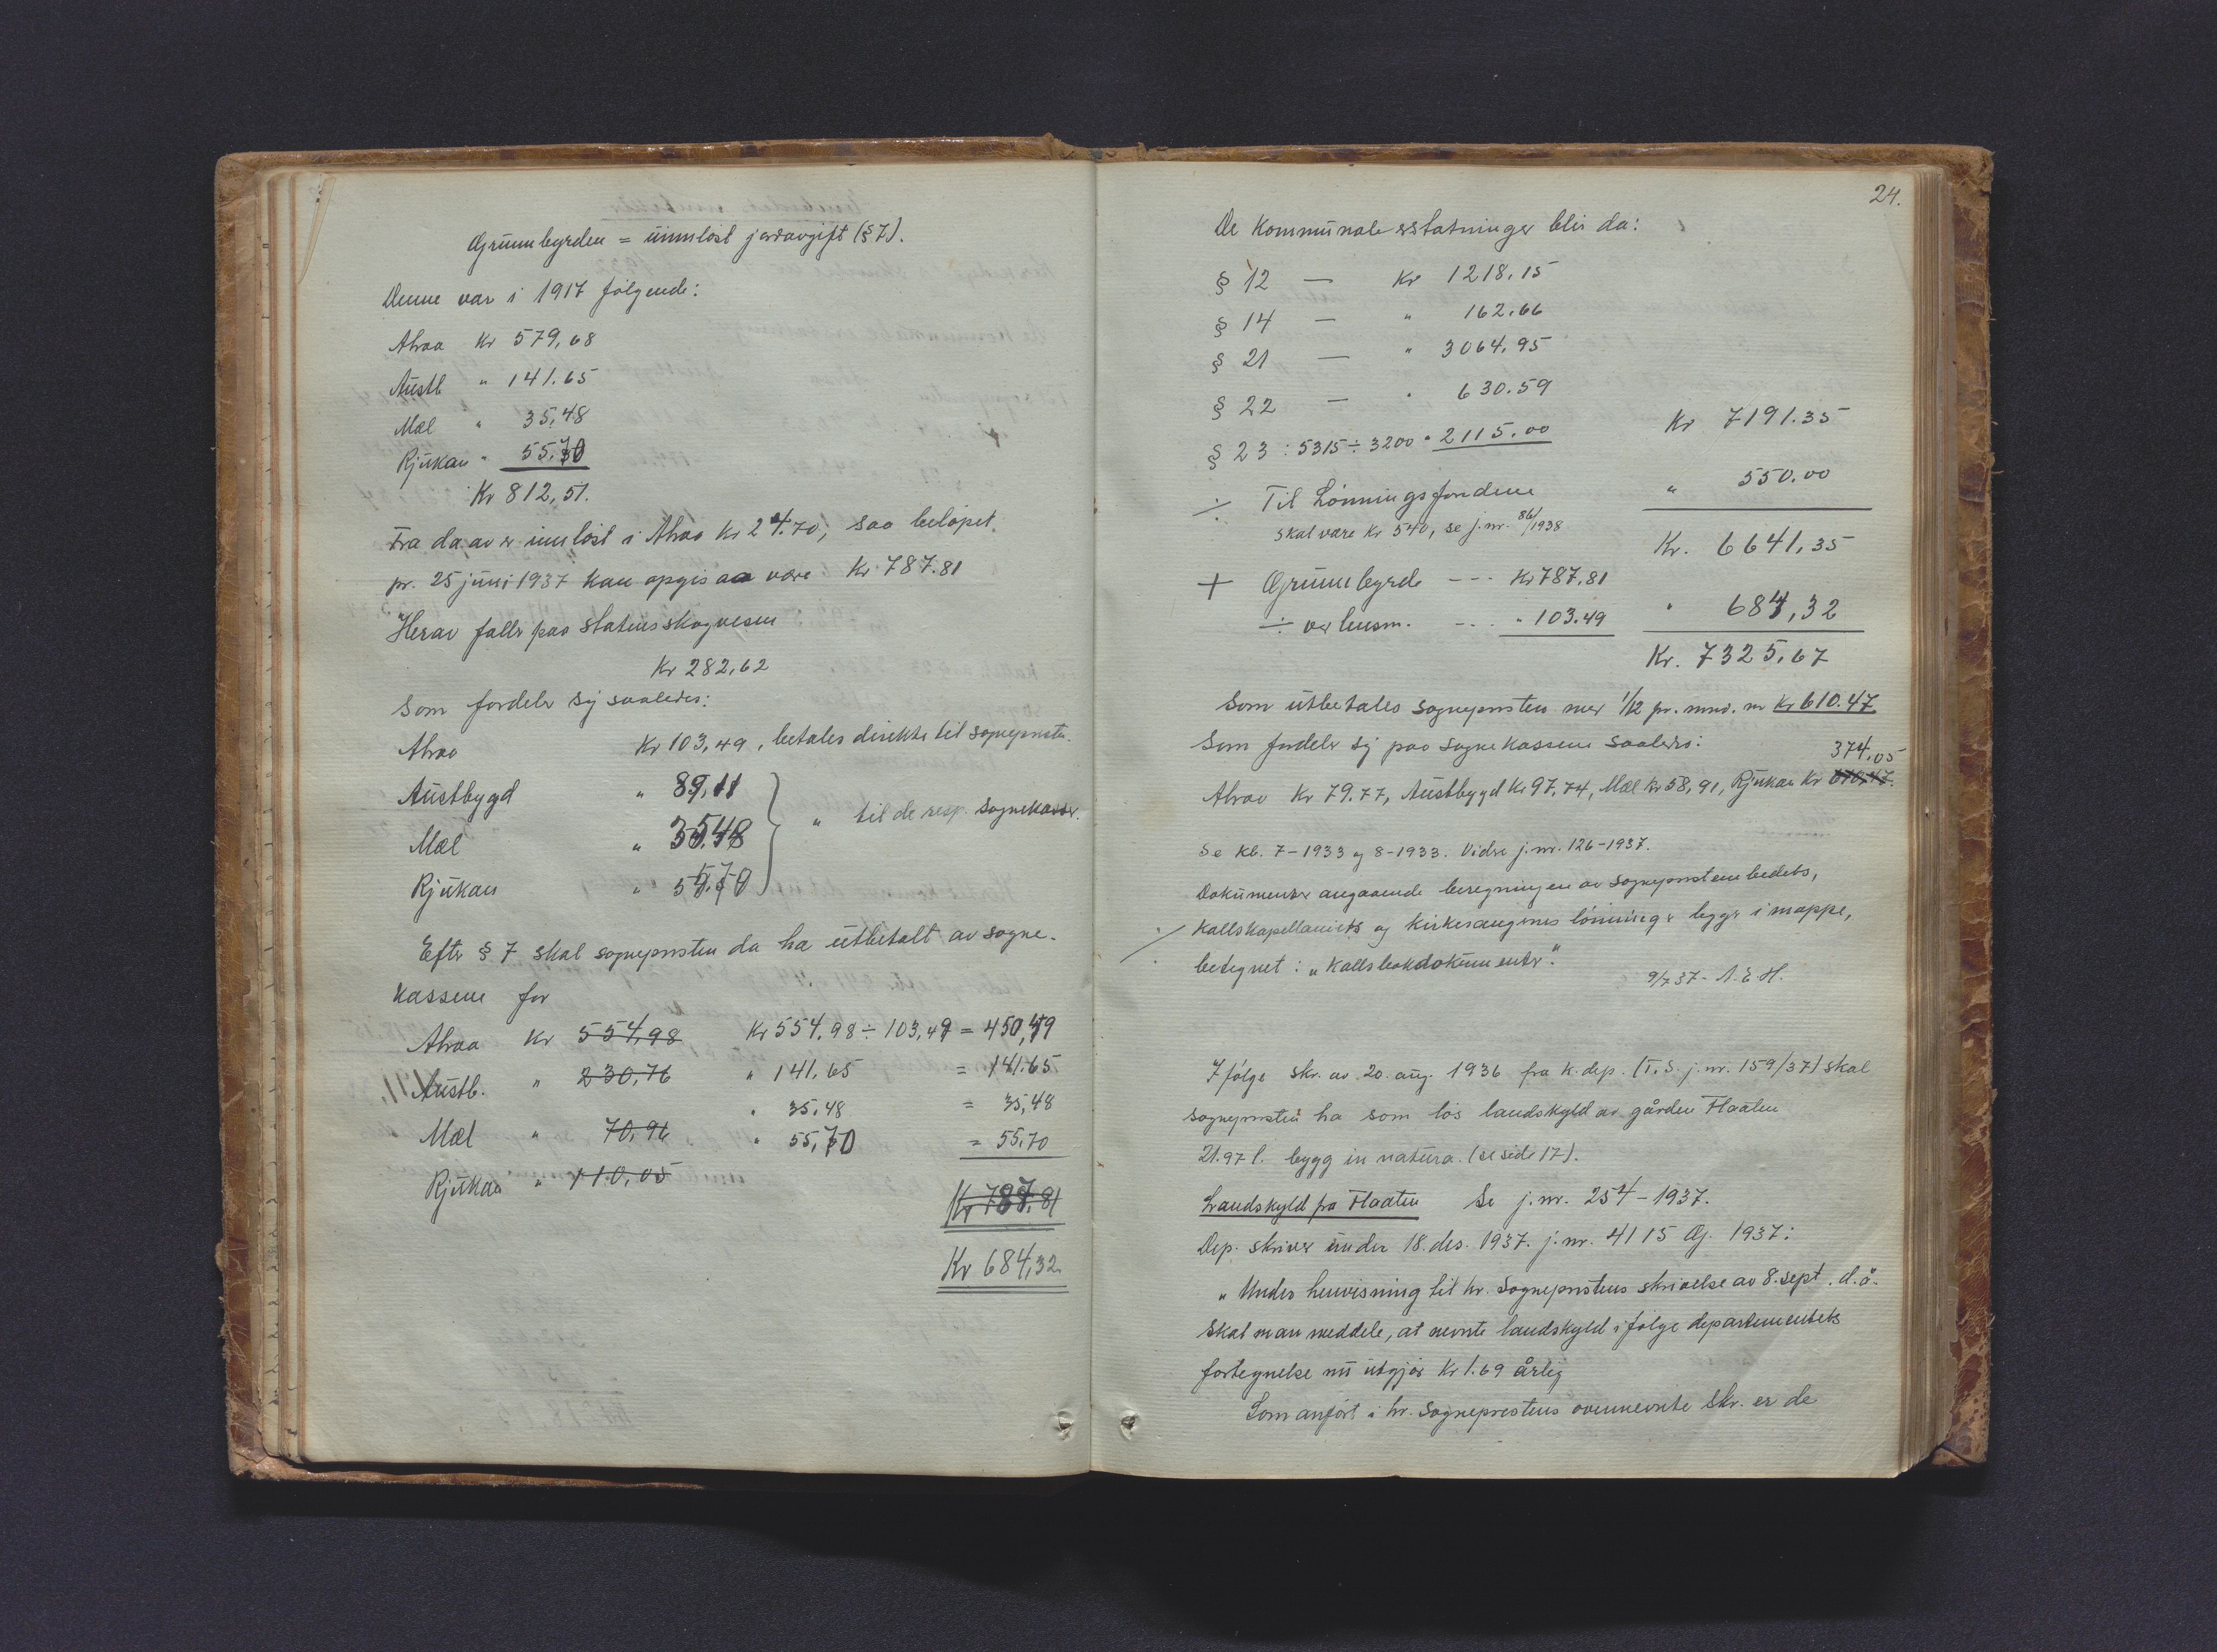 Grunnbyrden = uinnløst jordavgift (§ 7).
Denne var i 1917 følgende:
Atraa Kr 579,68
Austb " 141.65
Mæl " 35,48
Rjukan " 55,70
Kr 812,51.
Fra da av er innløst i Atraa Kr 24.70, saa beløpet
pr. 25 juni 1937 kan opgis aa være Kr 787.81
Herav faller paa Statens skogvesen
Kr 282,62
som fordeler sig saaledes:
Atraa Kr 103,49, betales direkte til sognepresten.
Austbygd " 89,11
Mæl " 35,48 " til de resp. sognekasser.
Rjukan " 55,70
Efter § 7 skal sognepresten da ha utbetalt av sogne-
kassene for
Atraa Kr 554,98 Kr 554,98 ÷ 103,49 = 450,49
Austb. " 230,76 " 141,65 = 141.65
" 35,48 = 35,48
Mæl " 70,96 " 55,70 = 55,70
Rjukan " 110,05
Kr 787,81
Kr 684,32
24.
De kommunale erstatninger blir da:
§ 12 — Kr 1218.15
§ 14 — " 162.66
§ 21 — " 3064.95
§ 22 — " 630.59
§ 23 : 5315 ÷ 3200 " 2115.00 Kr 7191.35
÷ Til Lønningsfondene " 550.00
skal være Kr 540, se j.nr. 86/1938
Kr. 6641,35
+ Grunnbyrde --- Kr 787,81
÷ --- " 103.49 " 684,32
Kr. 7325,67
Som utbetales sognepresten med 1/12 pr. mnd. Kr 610.47
Som fordeler sig paa sognekassene saaledes:
374,05
Atraa Kr 79.77, Austbygd Kr 97,74, Mæl Kr 58,91, Rjukan Kr 610.47.
Se kb. 7-1933 og 8-1933. Videre j.nr. 126-1937.
Dokumenter angaaende beregningen av sogneprestembedets,
kallskapellaniets og kirkesangernes lønninger legges i mappe,
betegnet: "Kallsbokdokumenter".
9/7 37 - N.E.H.
Ifølge skr. av 20. aug. 1936 fra K.dep. (T.S. j.nr. 159/37) skal
sognepresten ha som løs landskyld av gården Flaaten
21.97 l. bygg in natura. (se side 17).
Landskyld fra Flaaten Se j.nr. 254-1937.
Dep. skriver under 18. des. 1937. j.nr. 4115 Gj. 1937:
"Under henvisning til hr. Sogneprestens skrivelse av 8. sept. d.å.
skal man meddele, at nevnte landskyld ifølge departementets
fortegnelse nu utgjør Kr 1.69 årlig
Som anført i hr. Sogneprestens ovennevnte skr. er de